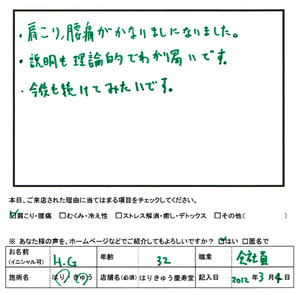 ・肩こり、腰痛がかなりましになりました。
・説明も理論的でわかり易いです。
・今後も続けてみたいです。
本日、ご来店された理由に当てはまる項目をチェックしてください。
☑肩こり・腰痛 □むくみ・冷え性 □ストレス解消・癒し・デトックス □その他( )
※ あなた様の声を、ホームページなどでご紹介してもよろしいですか? ☑はい □匿名で
お名前(イニシャル可) H.G 年齢 32 職業 会社員
施術名 はり・きゅう 店舗名(必須) はりきゅう慶寿堂 記入日 2012年3月4日